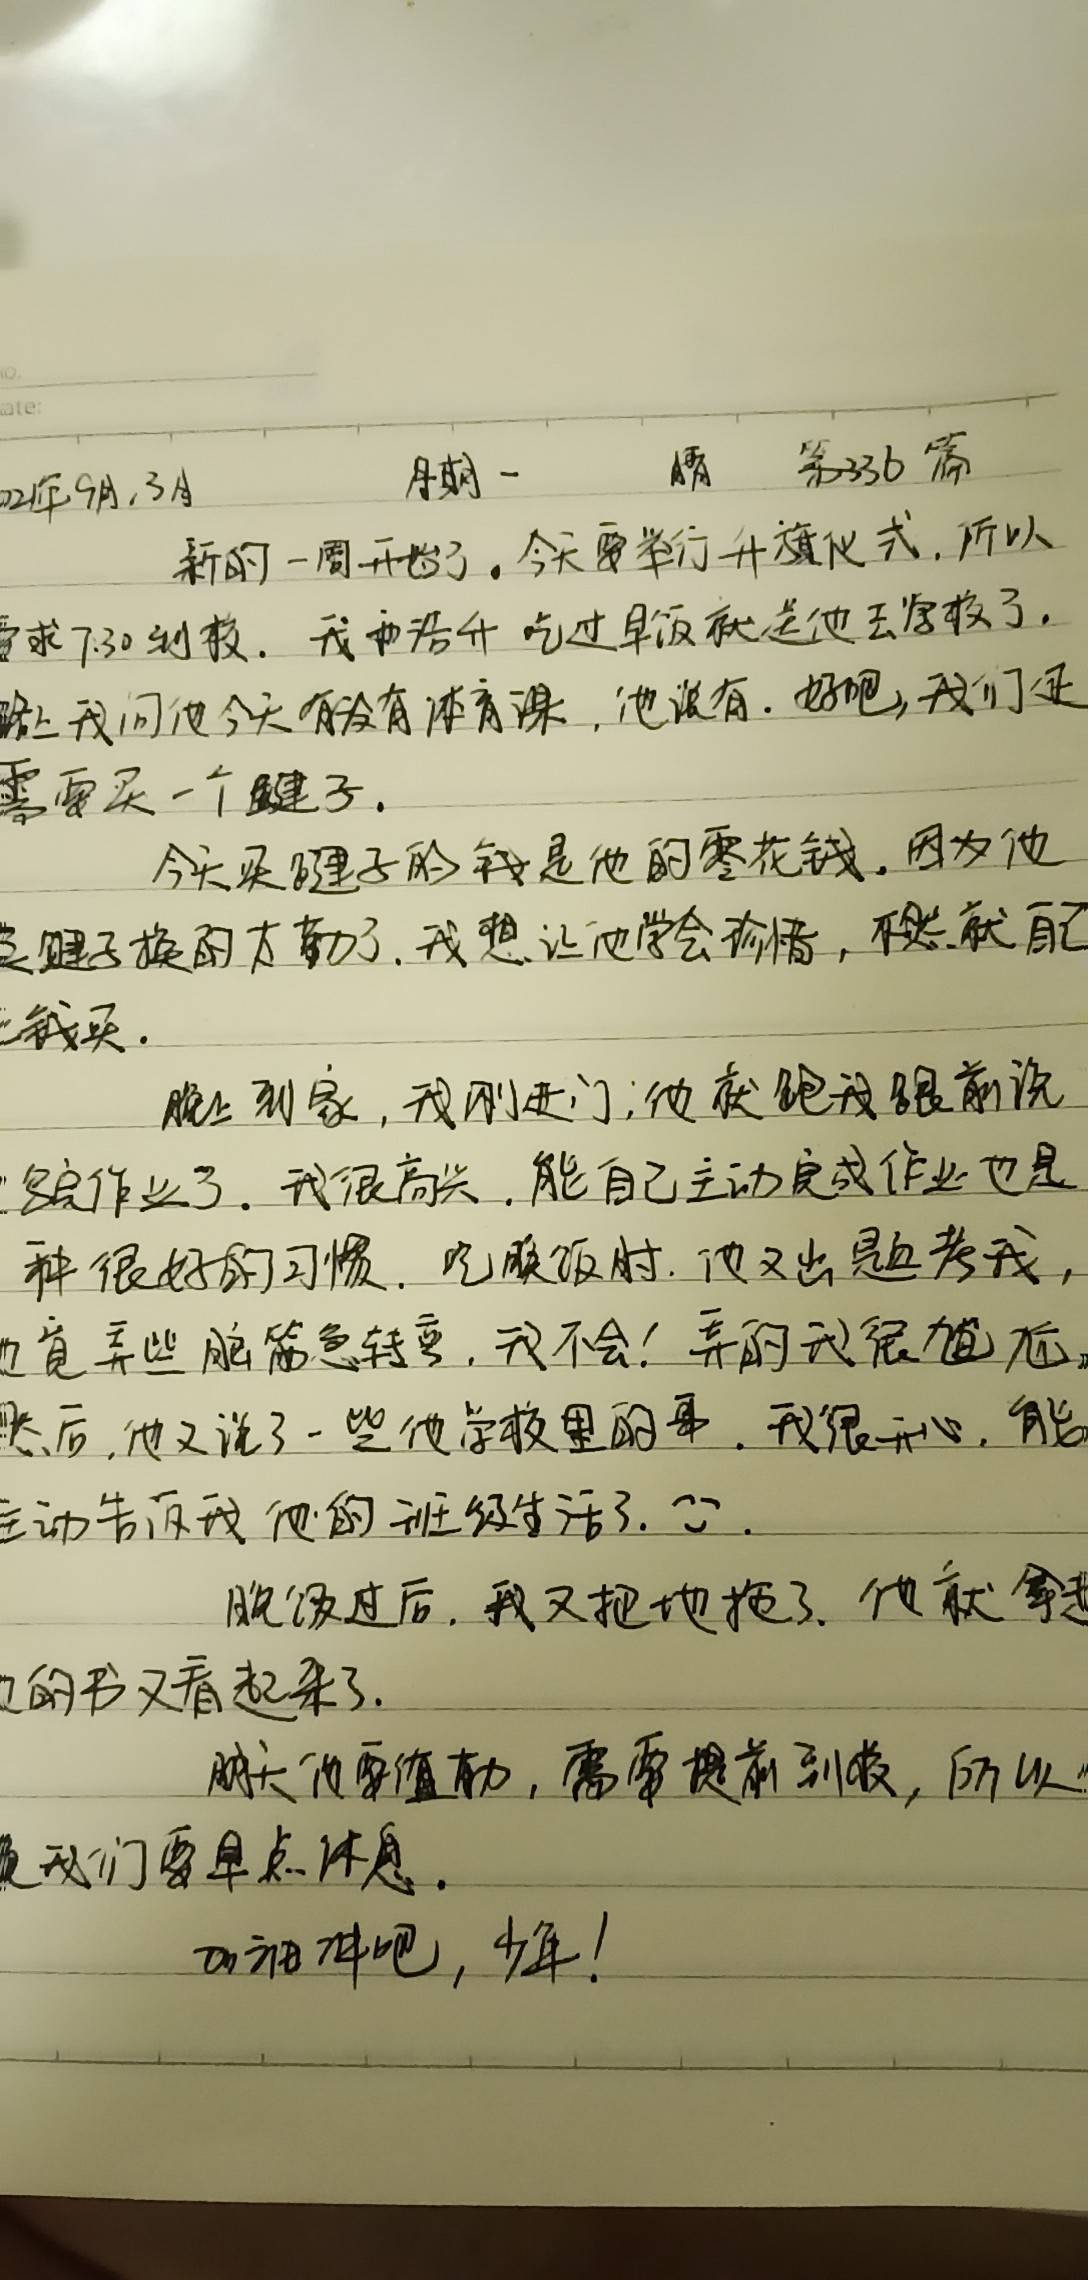 No.
ate:
021年9月.13日 星期一 晴 第336篇
新的一周开始了。今天要举行升旗仪式,所以
要求7:30到校. 我和浩升吃过早饭就送他去学校了.
路上我问他今天有没有体育课,他没有.好吧,我们还
需要买一个毽子.
今天买毽子的钱是他的零花钱.因为他
毽子换的太勤了.我想让他学会珍惜,不然就自己
钱买.
晚上到家,我刚进门,他就跑我跟前说
写完作业了.我很高兴.能自己主动完成作业也是
种很好的习惯.吃晚饭时.他又出题考我,
他竟弄些脑筋急转弯.我不会!弄的我很尴尬。
然后,他又说了一些他学校里的事.我很开心.能
主动告诉我他的班级生活了.
晚饭过后.我又把地拖了.他就拿起
他的书又看起来了.
明天他要值勤,需要提前到校,所以
我们要早点休息.
加油冲吧,少年!